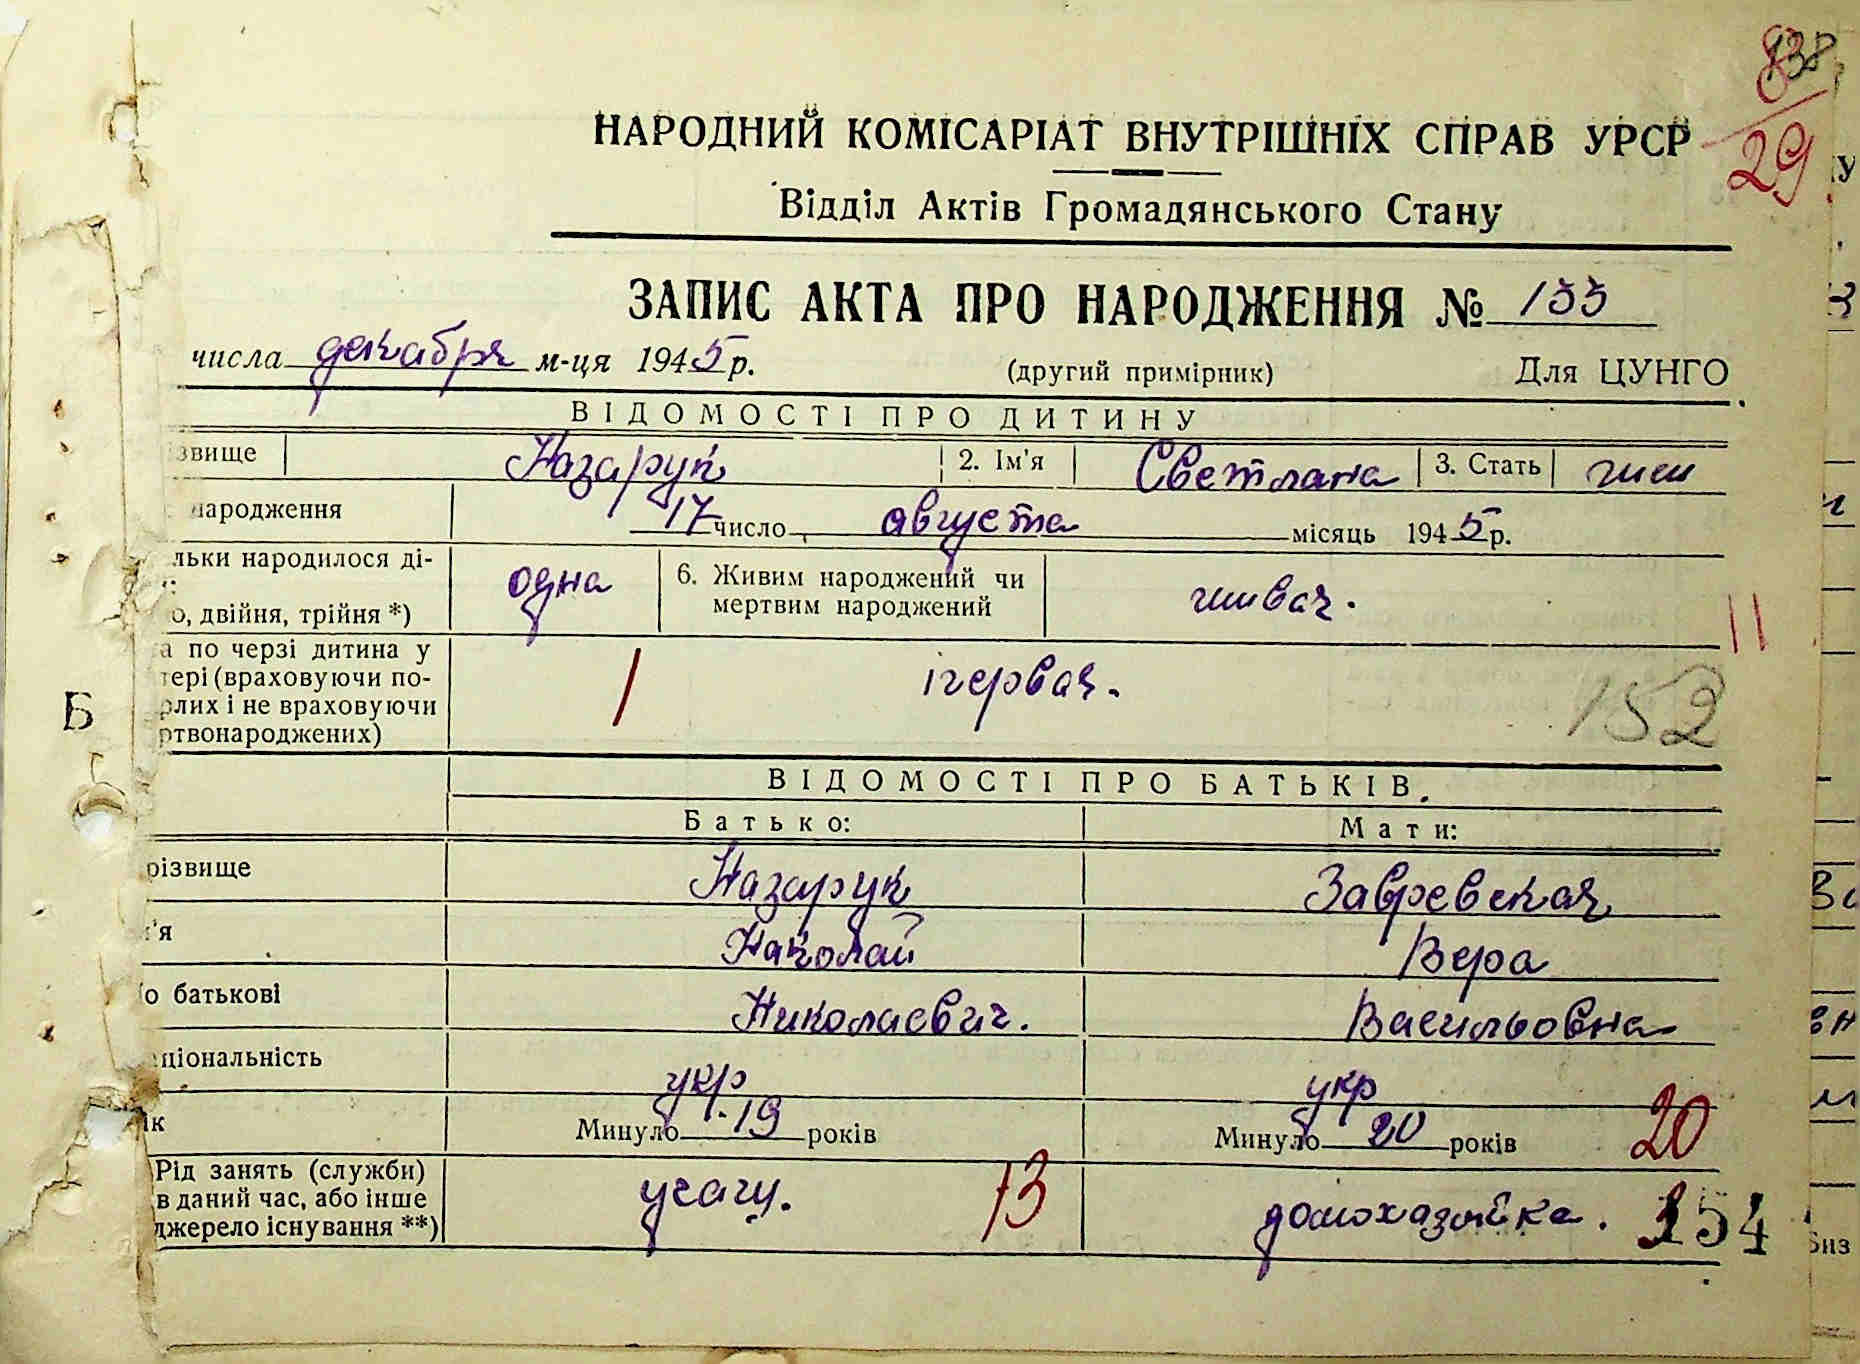 138
8
29
НАРОДНИЙ КОМІСАРІАТ ВНУТРІШНІХ СПРАВ УРСР
Відділ Актів Громадянського Стану
ЗАПИС АКТА ПРО НАРОДЖЕННЯ № 155
числа декабря м-ця 1945 р.
(другий примірник) Для ЦУНГО
ВІДОМОСТІ ПРО ДИТИНУ
звище Назарук 2. Ім'я Светлана 3. Стать жен
народження 17 число августа місяць 1945 р.
льки народилося ді-
о, двійня, трійня *) одна 6. Живим народжений чи мертвим народжений живая.
11
а по черзі дитина у
тері (враховуючи по-
рлих і не враховуючи
ртвонароджених) 1 первая.
152
Б
ВІДОМОСТІ ПРО БАТЬКІВ.
Батько: Мати:
різвище Назарук Завревская
м'я Николай Вера
о батькові Николаевич. Васильовна
ціональність укр укр
ік Минуло 19 років Минуло 20 років 20
Рід занять (служби)
в даний час, або інше
джерело існування **) 13 домохазяйка. 154